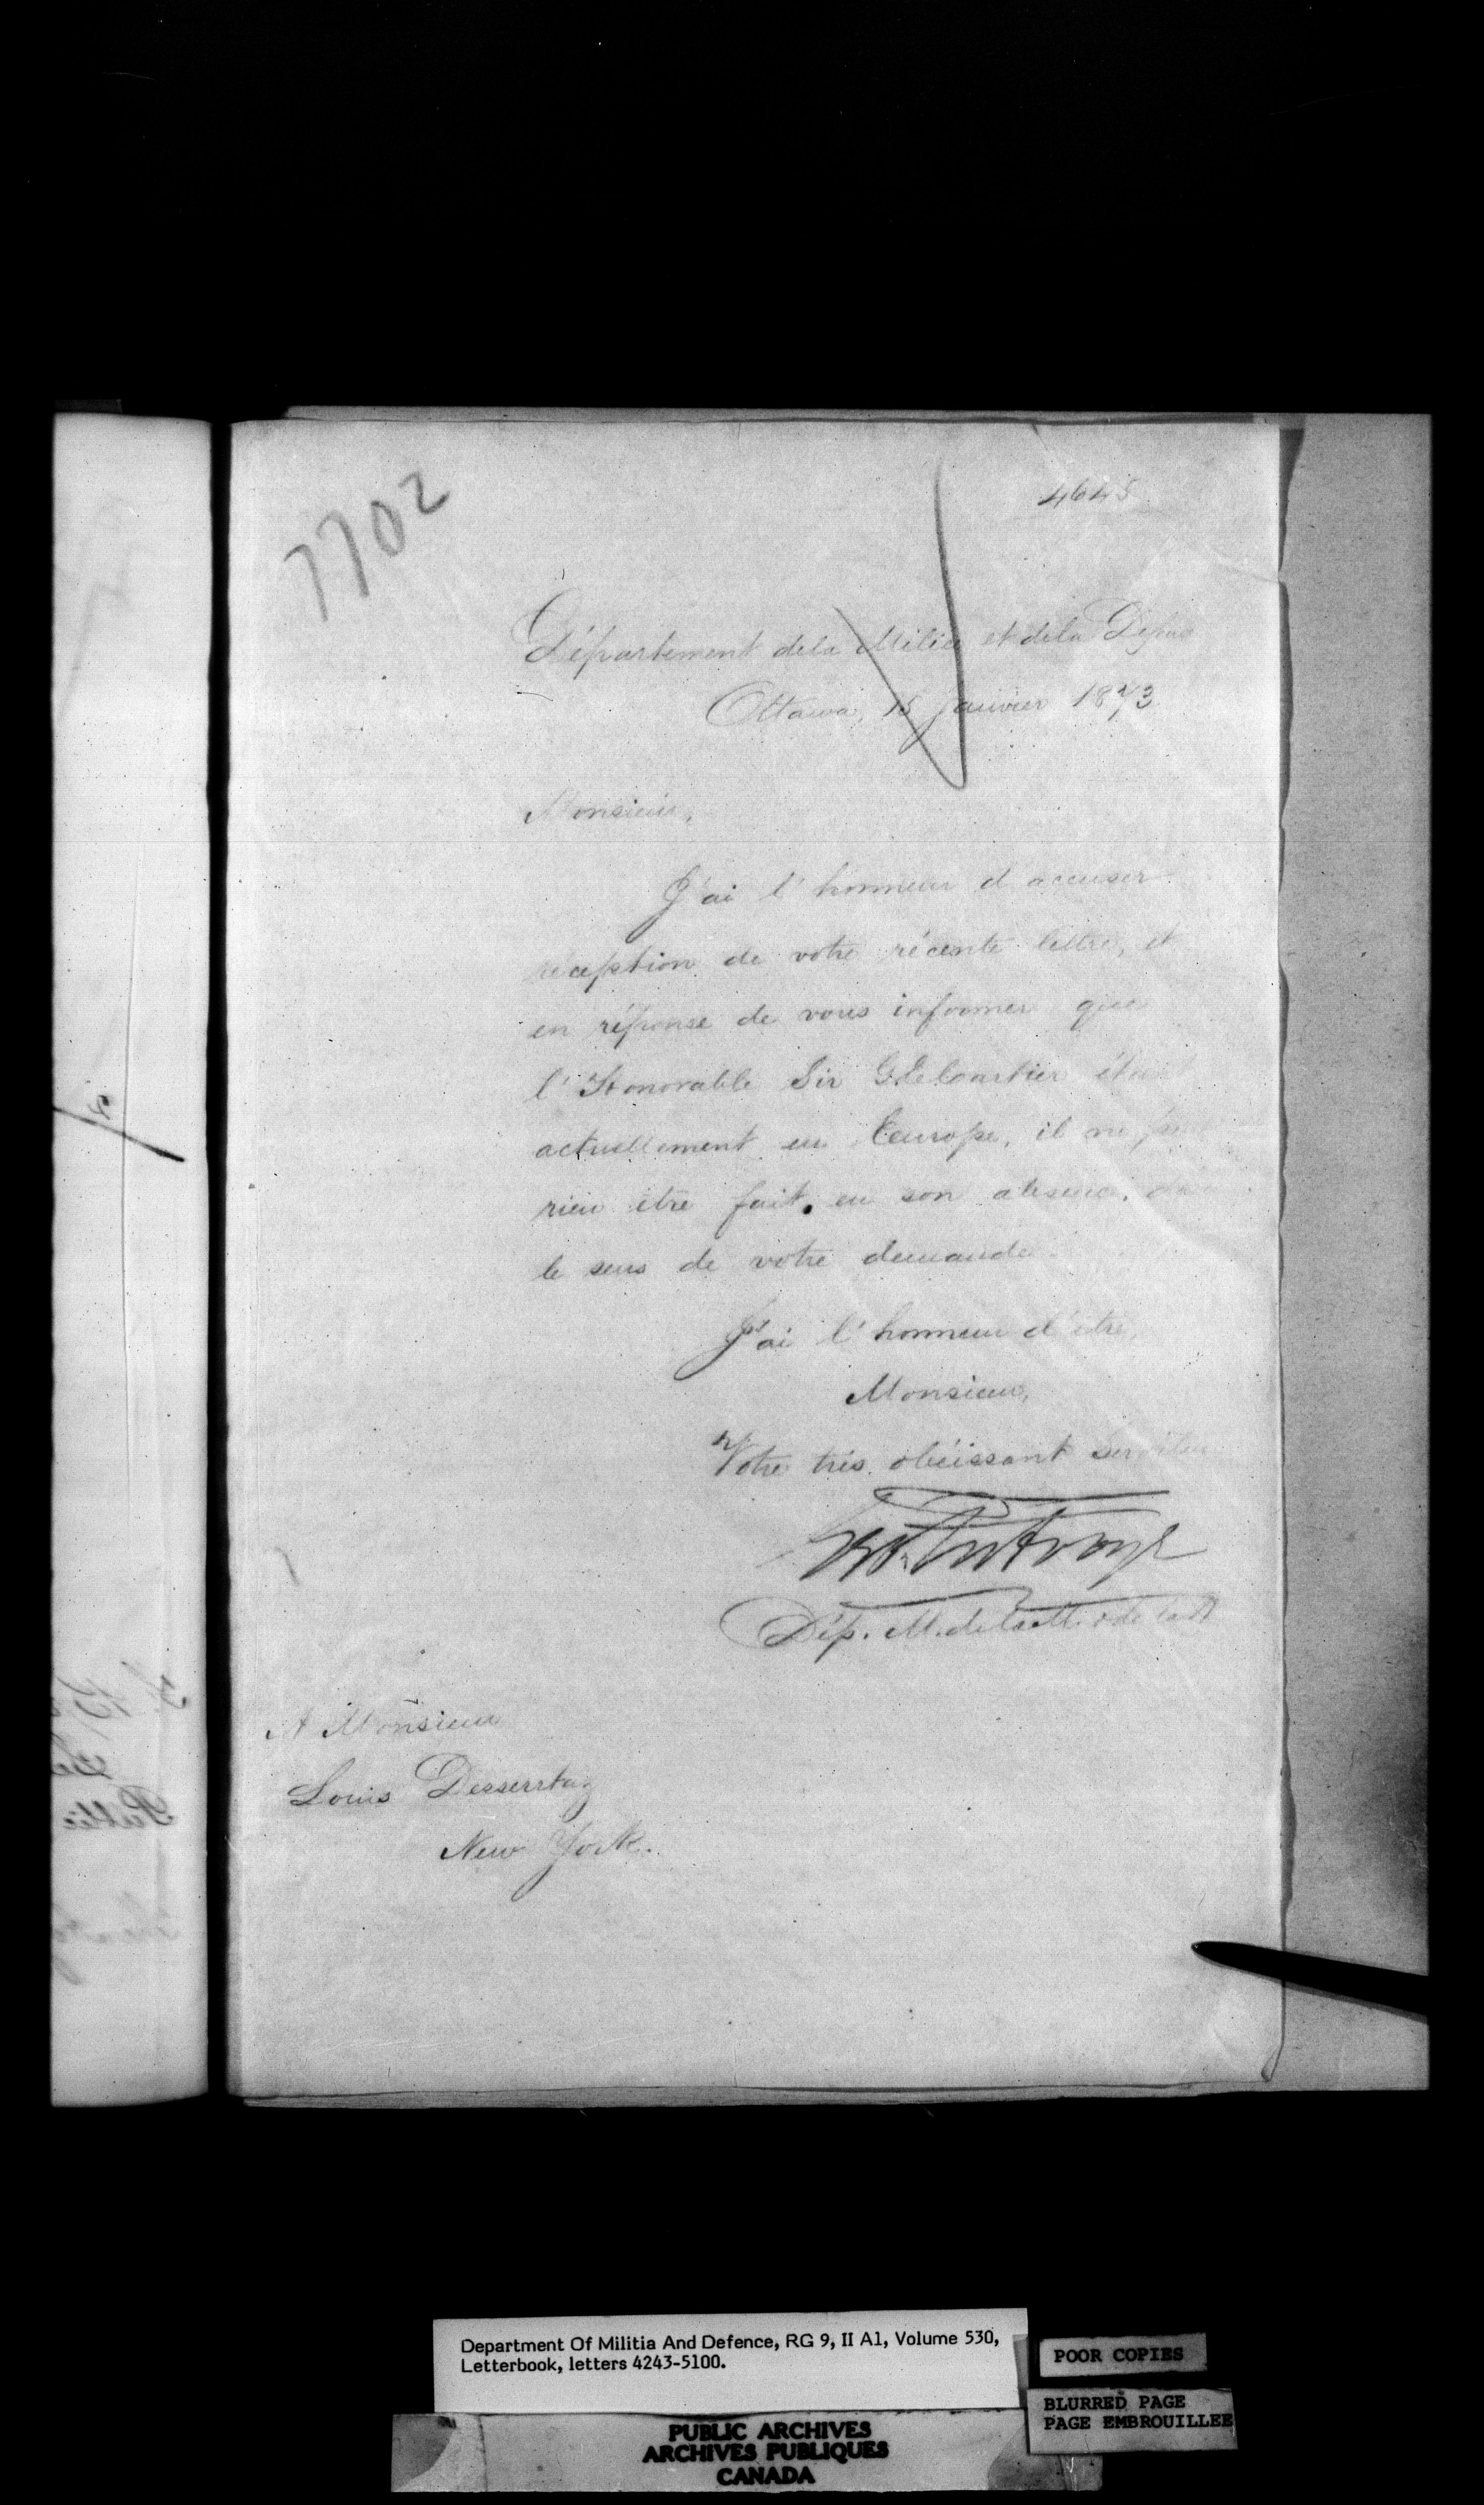 7702
4645
Département de la Milice et de la Défense
Ottawa, 15 Janvier 1873
Monsieur,
J'ai l'honneur d'accuser
réception de votre récente lettre, et
en réponse de vous informer que
l'Honorable Sir G. E. Cartier étant
actuellement en Europe, il ne peut
rien être fait, en son absence, dans
le sens de votre demande.
J'ai l'honneur d'être,
Monsieur,
Votre très obéissant Serviteur
Dép. M. de la M. & de la D
A Monsieur
Louis
New York.
Department Of Militia And Defence, RG 9, II A1, Volume 530,
Letterbook, letters 4243-5100.
POOR COPIES
BLURRED PAGE
PAGE EMBROUILLEE
PUBLIC ARCHIVES
ARCHIVES PUBLIQUES
CANADA